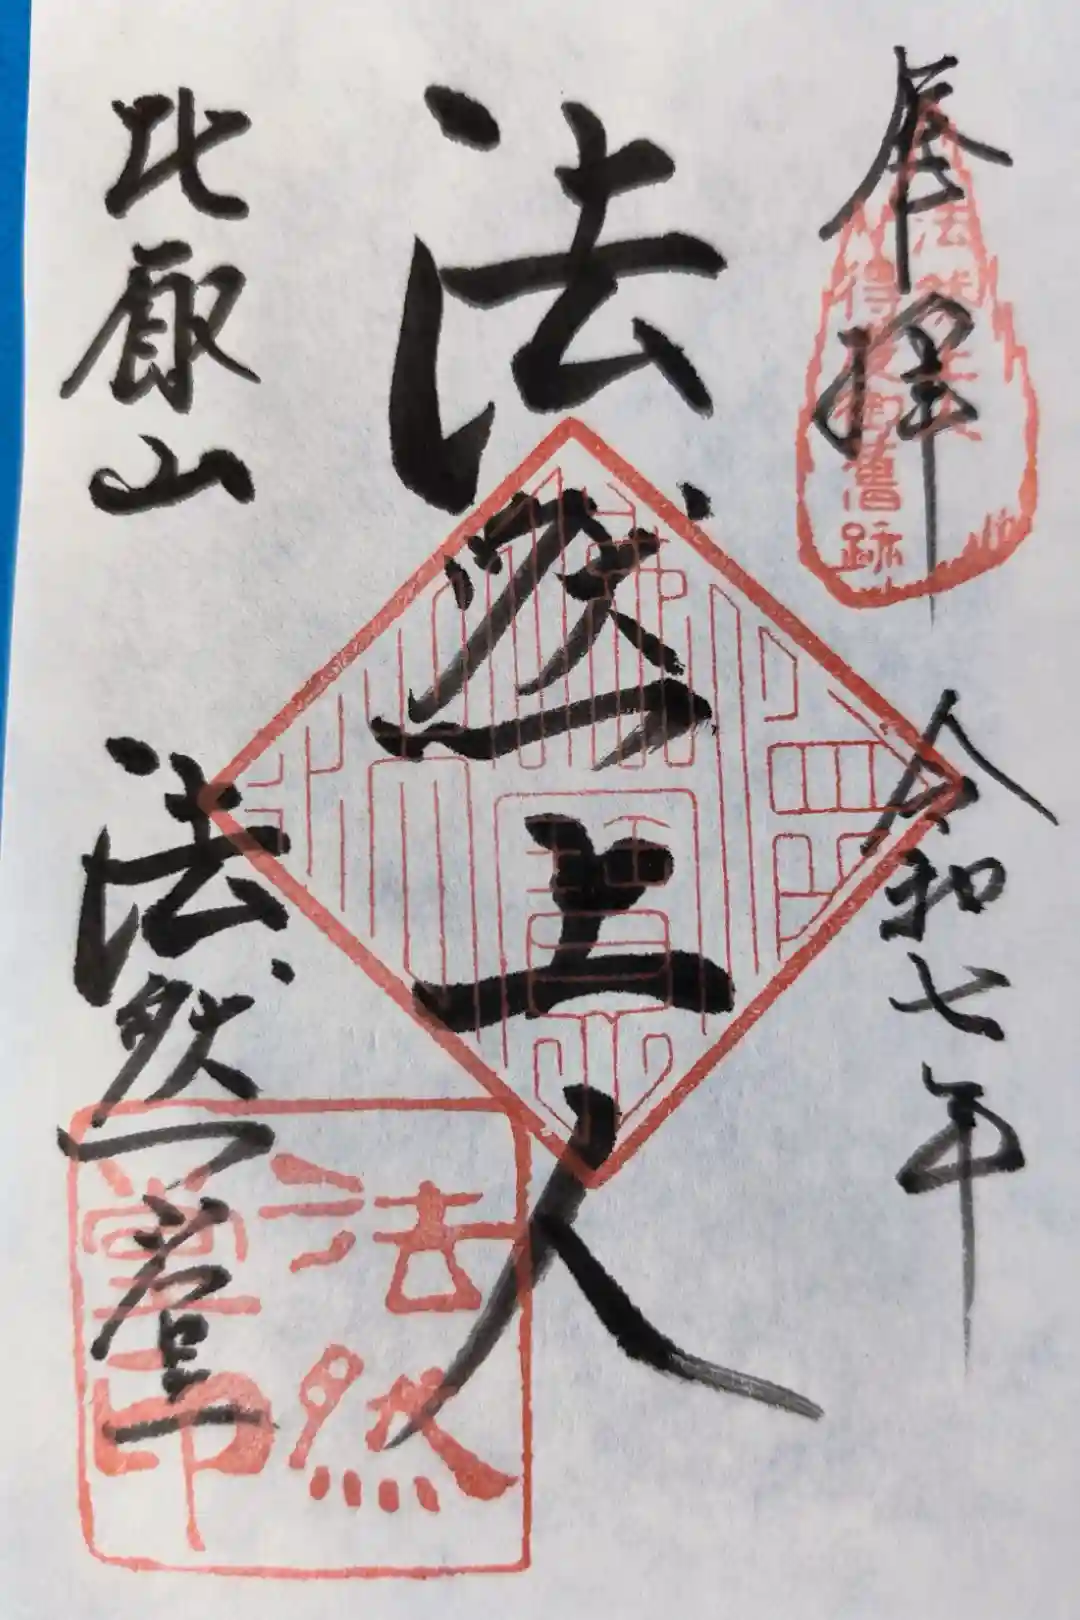 奉拝
令和七年
法然上人
比叡山
法然堂
法然上人
得度御舊跡
法然
堂印